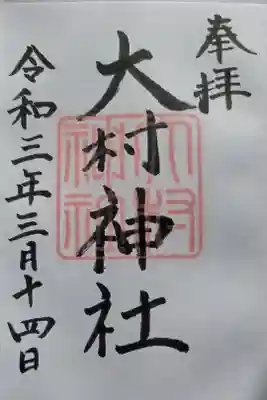 奉拝
大村神社
令和三年三月十四日
大村神社